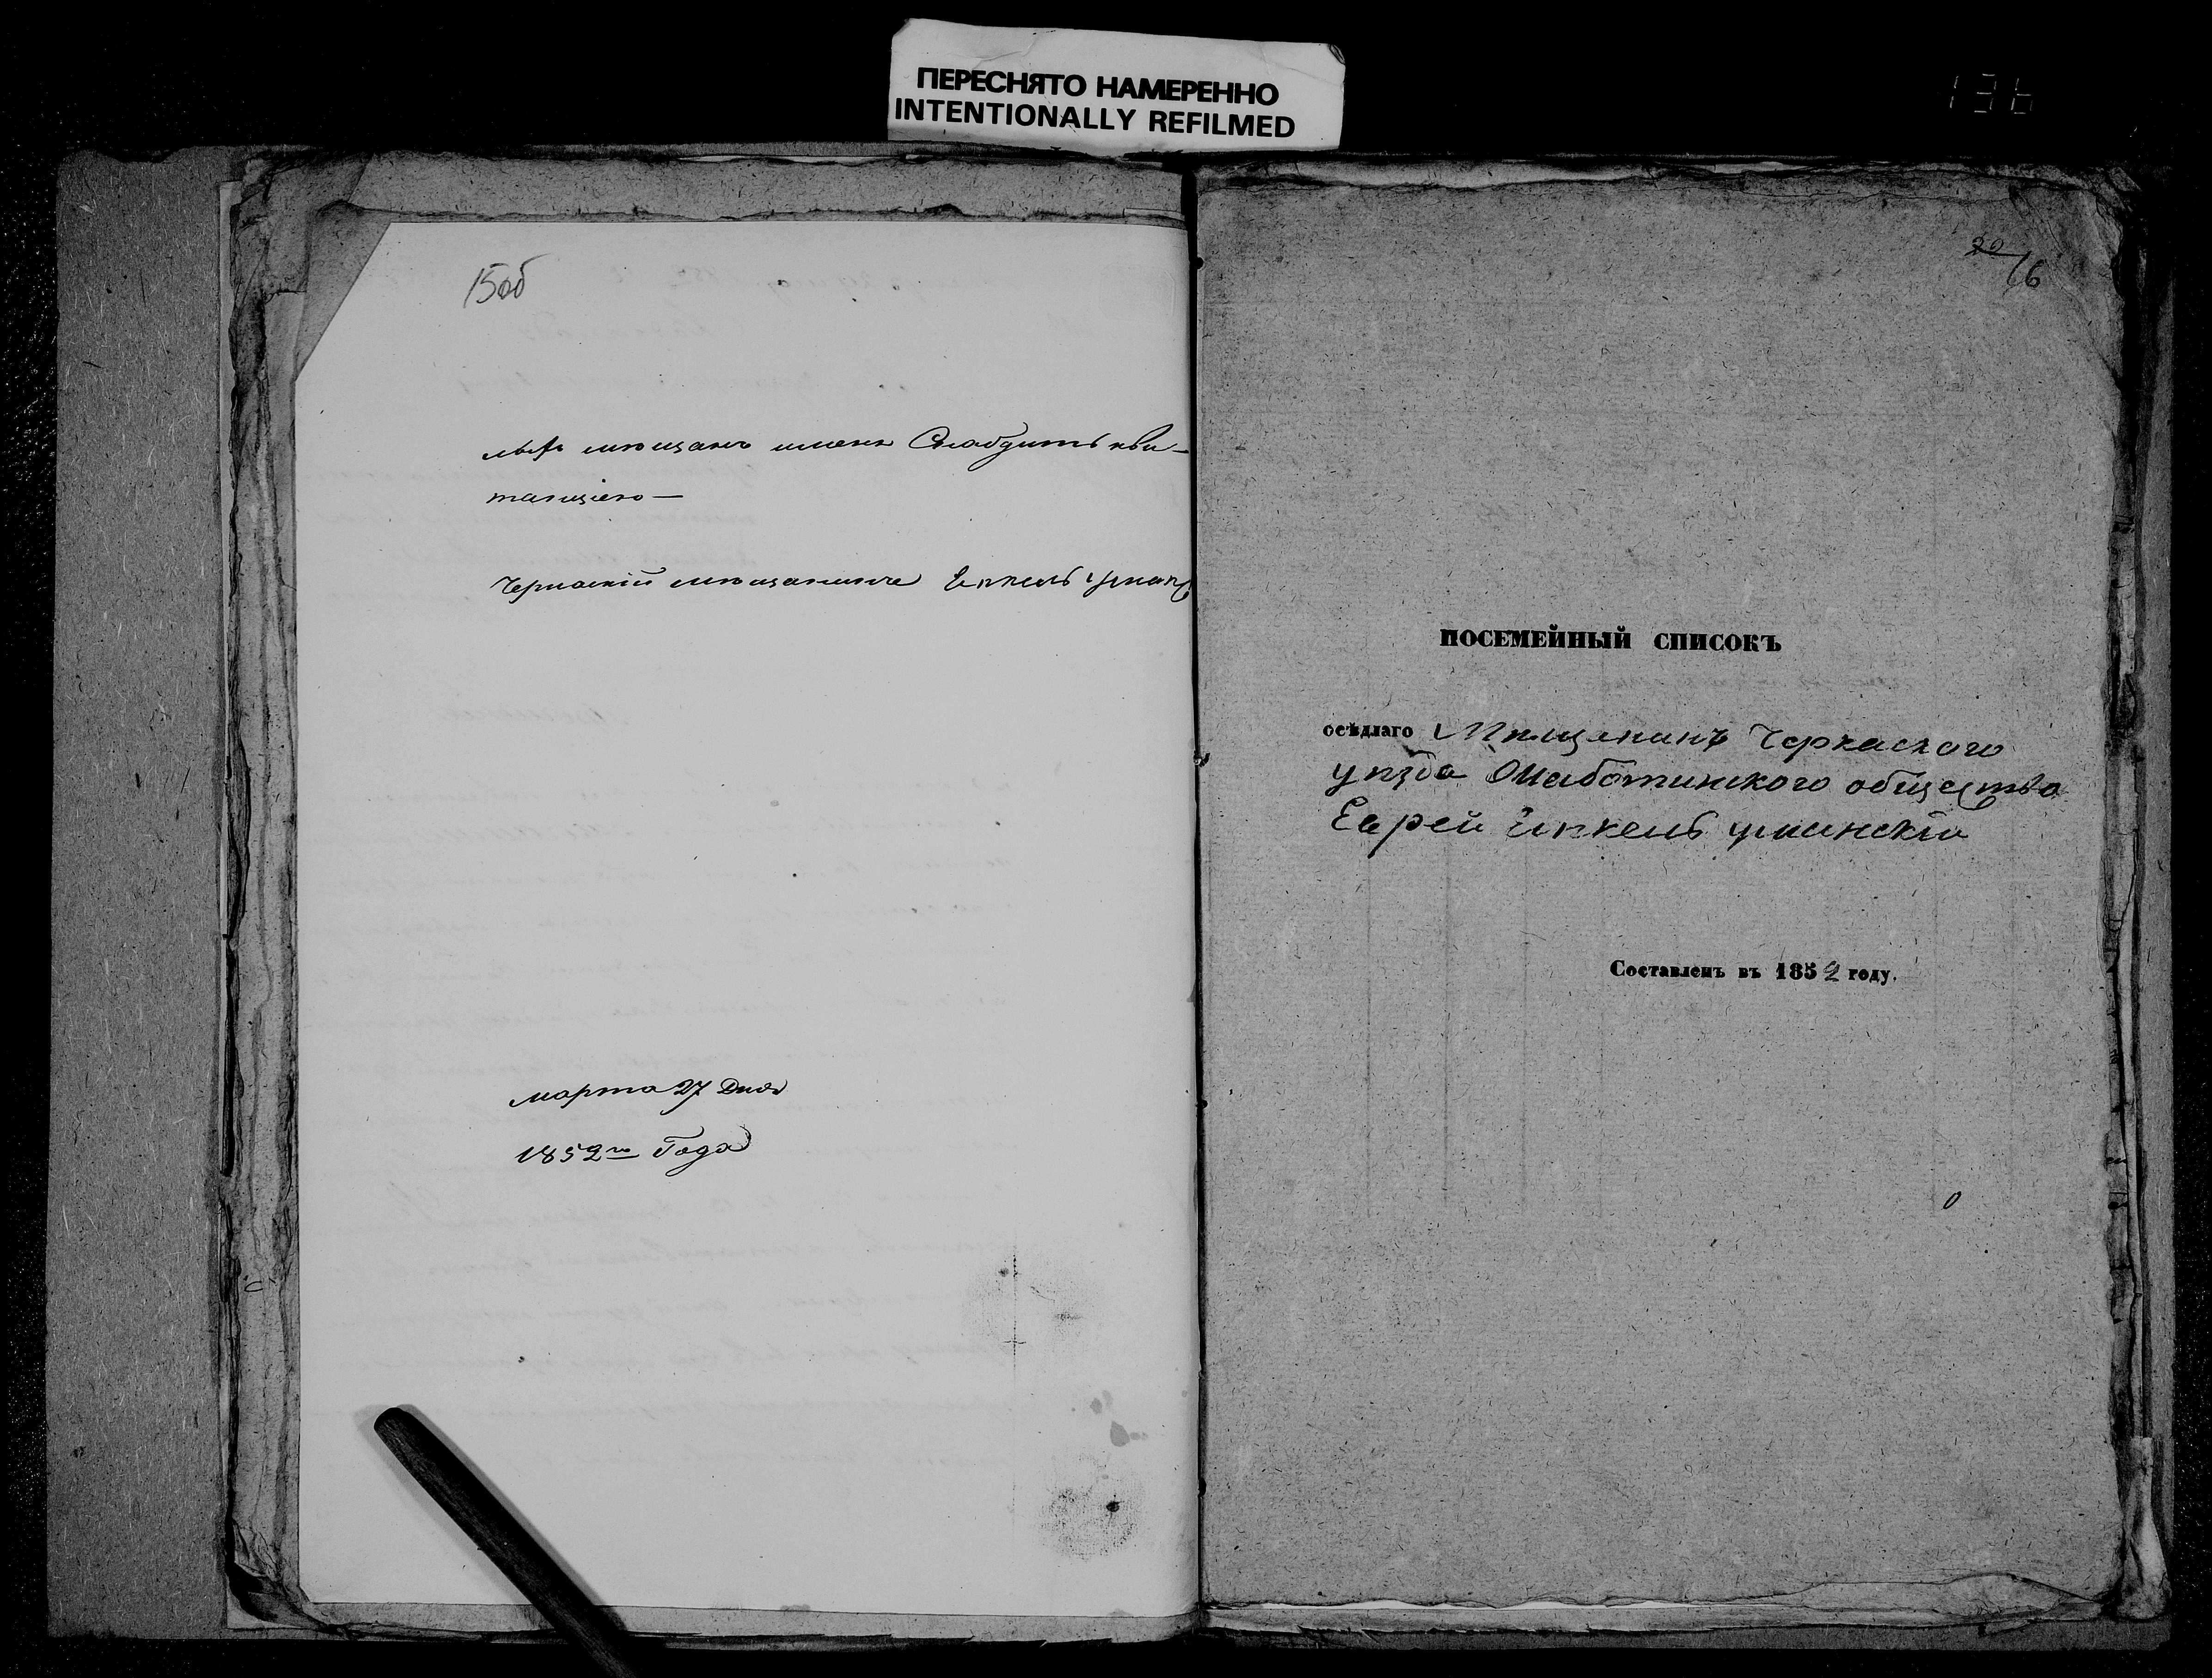 ПЕРЕСНЯТО НАМЕРЕННО
INTENTIONALLY REFILMED
136
15об
мещанъ меня Снабдить кви-
танціею —
Черкаскій мещанинъ Іцкель Уман
марта 27 Дня
1852го Года
20
16
ПОСЕМЕЙНЫЙ СПИСОКЪ
осѣдлаго Мѣщанинъ Черкаского
уѣзда Смаботинского общества
Еврей Іцкель уманскій
Составленъ въ 1852 году.